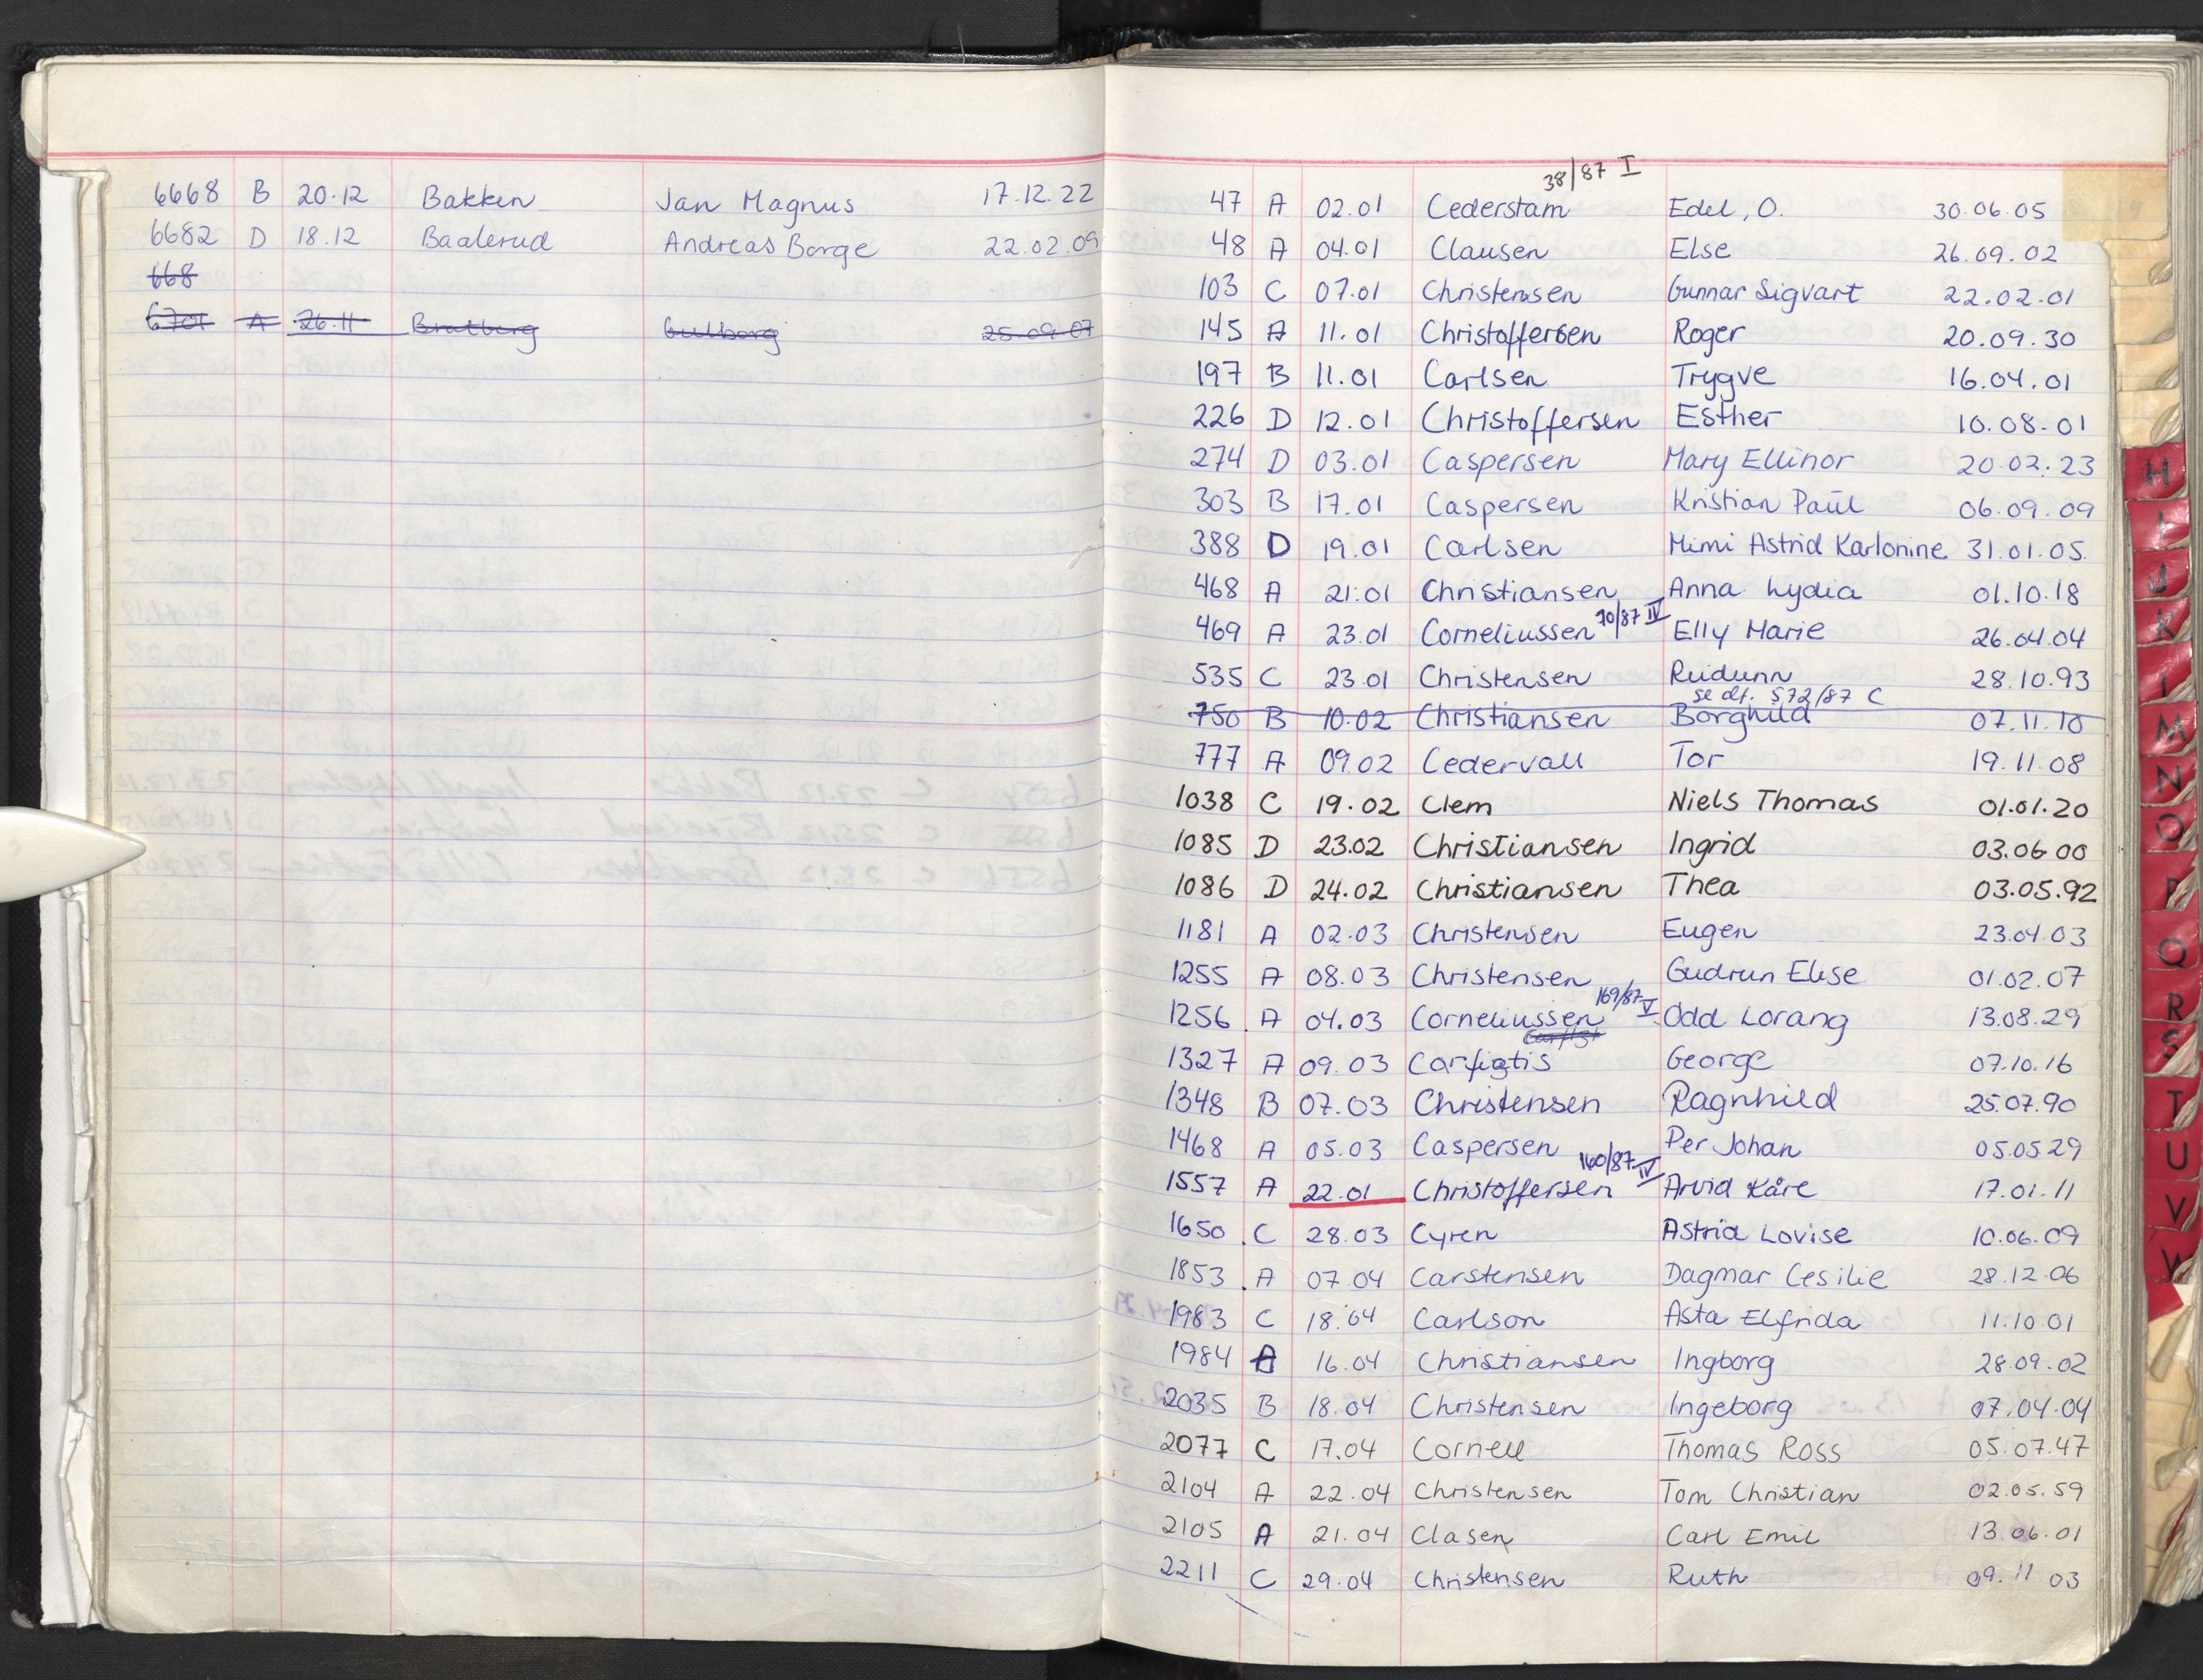 6668 B 20.12 Bakken Jan Magnus 17.12.22
6682 D 18.12 Baalerud Andreas Borge 22.02.09
668
6701 A 26.11 Bratberg Gulborg 25.09.07
38/87 I
47 A 02.01 Cederstam Edel, O. 30.06.05
48 A 04.01 Clausen Else 26.09.02
103 C 07.01 Christensen Gunnar Sigvart 22.02.01
145 A 11.01 Christoffersen Roger 20.09.30
197 B 11.01 Carlsen Trygve 16.04.01
226 D 12.01 Christoffersen Esther 10.08.01
274 D 03.01 Caspersen Mary Ellinor 20.02.23
303 B 17.01 Caspersen Kristian Paul 06.09.09
388 D 19.01 Carlsen Mimi Astrid Karlonine 31.01.05.
468 A 21.01 Christiansen Anna Lydia 01.10.18
70/87 IV
469 A 23.01 Corneliussen Elly Marie 26.04.04
535 C 23.01 Christensen Reidunn 28.10.93
se df. 572/87 C
750 B 10.02 Christiansen Borghild 07.11.10
777 A 09.02 Cedervall Tor 19.11.08
1038 C 19.02 Clem Niels Thomas 01.01.20
1085 D 23.02 Christiansen Ingrid 03.06 00
1086 D 24.02 Christiansen Thea 03.05.92
1181 A 02.03 Christensen Eugen 23.04.03
1255 A 08.03 Christensen Gudrun Elise 01.02.07
169/87 V
1256 A 04.03 Corneliussen Odd Lorang 13.08.29
1327 A 09.03 Carfigtis George 07.10.16
1348 B 07.03 Christensen Ragnhild 25.07.90
1468 A 05.03 Caspersen Per Johan 05.05.29
160/87 IV
1557 A 22.01 Christoffersen Arvid Kåre 17.01.11
1650 C 28.03 Cyren Astrid Lovise 10.06.09
1853 A 07.04 Carstensen Dagmar Cesilie 28.12.06
1983 C 18.04 Carlson Asta Elfrida 11.10.01
1984 A 16.04 Christiansen Ingborg 28.09.02
2035 B 18.04 Christensen Ingeborg 07.04.04
2077 C 17.04 Cornell Thomas Ross 05.07.47
2104 A 22.04 Christensen Tom Christian 02.05.59
2105 A 21.04 Clasen Carl Emil 13.06.01
2211 C 29.04 Christensen Ruth 09.11 03
H
I
J
K
M
N
O
P
Q
R
S
T
U
V
W